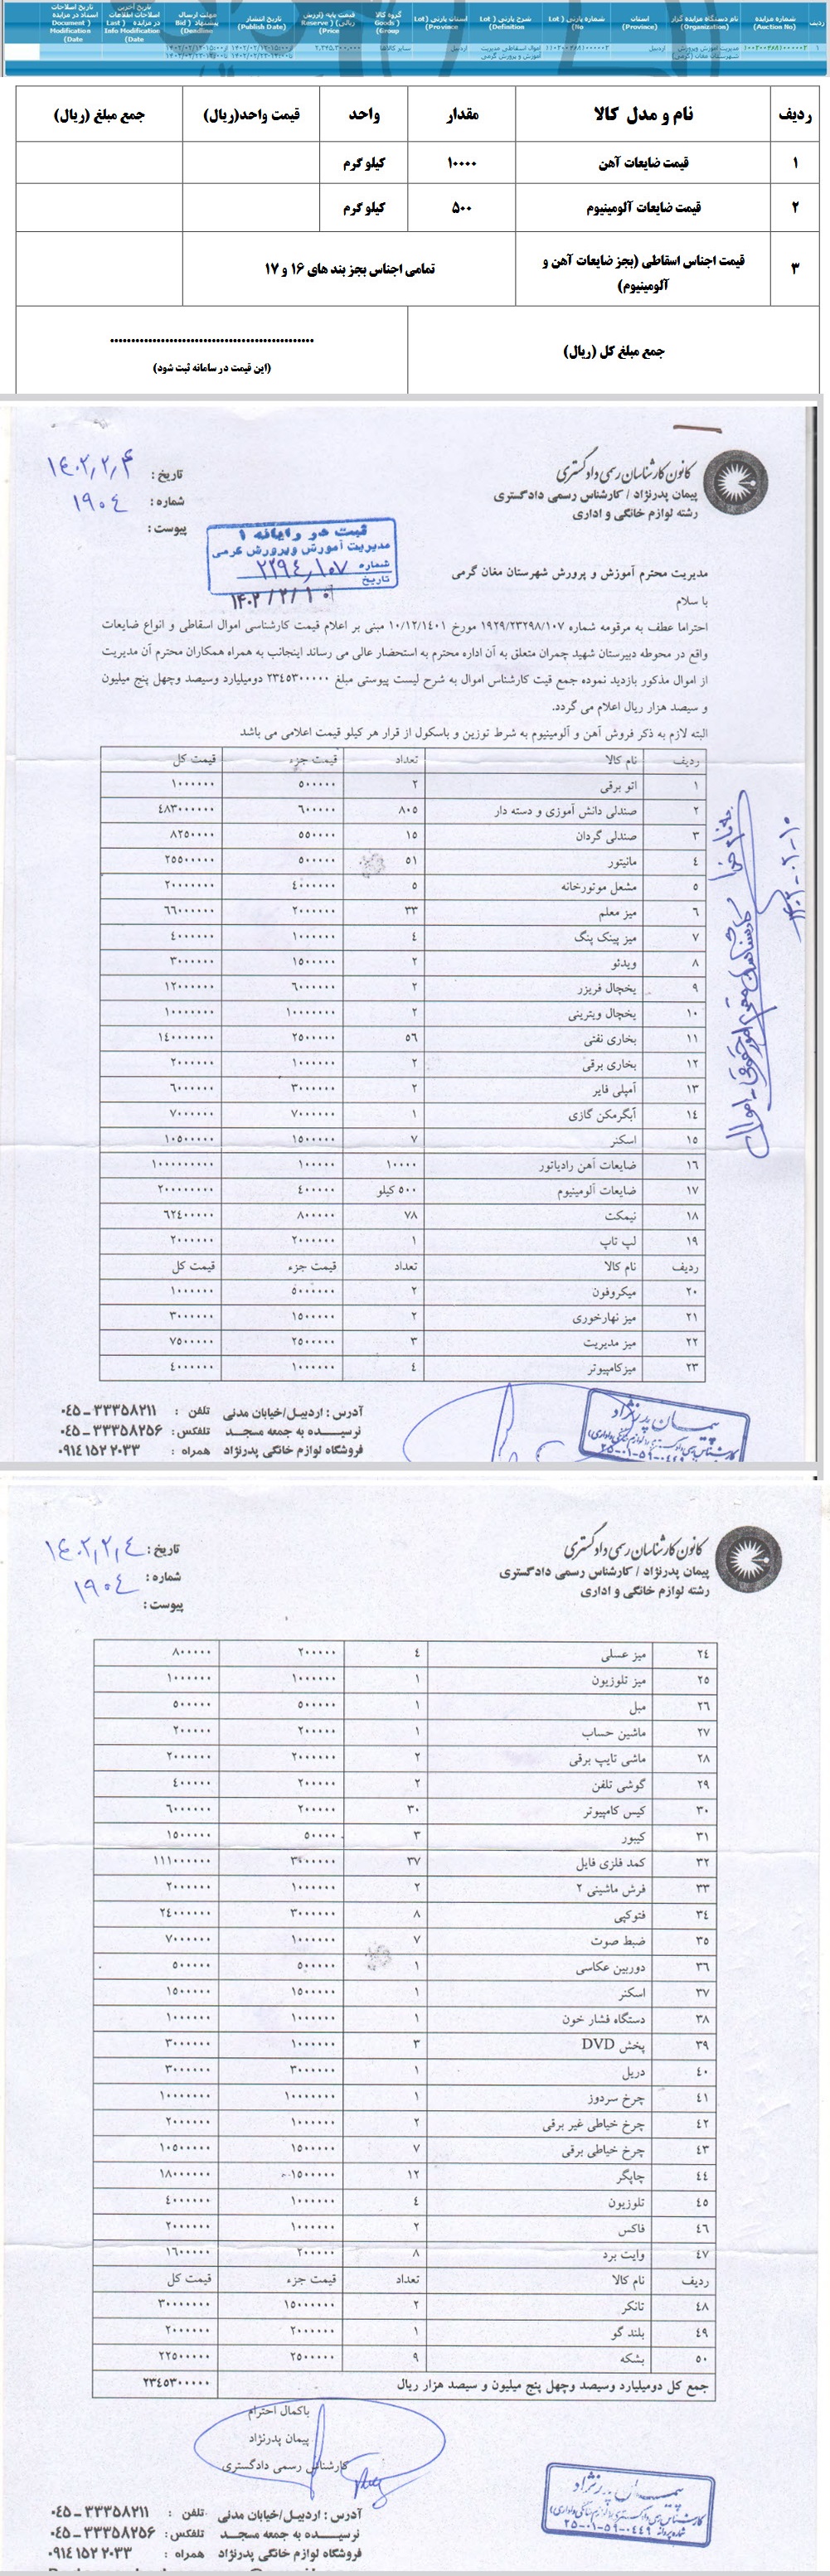 ردیف
شماره مزایده (Auction No)
نام دستگاه مزایده گزار (Organization)
استان (Province)
شماره پارتی (Lot No)
شرح پارتی (Lot Definition)
استان پارتی (Lot Province)
گروه کالا (Goods Group)
قیمت پایه (ارزش ریالی) (Reserve Price)
تاریخ انتشار (Publish Date)
مهلت ارسال پیشنهاد (Bid Deadline)
ردیف نام و مدل کالا مقدار واحد قیمت واحد(ریال) جمع مبلغ (ریال)
۱ قیمت ضایعات آهن ۱۰۰۰۰ کیلو گرم
۲ قیمت ضایعات آلومینیوم ۵۰۰ کیلو گرم
۳ قیمت اجناس اسقاطی (بجز ضایعات آهن و آلومینیوم) تمامی اجناس بجز بند های ۱۶ و ۱۷
جمع مبلغ کل (ریال)
(این قیمت در سامانه ثبت شود)
کانون کارشناسان رسمی دادگستری
پیمان پدرنژاد / کارشناس رسمی دادگستری
رشته لوازم خانگی و اداری
تاریخ : ۱۴۰۲,۲,۴
شماره : ۱۹۰۴
پیوست :
ثبت در رایانه ۱
مدیریت آموزش وپرورش گرمی
شماره ۲۲۹۴,۱۰۷
تاریخ ۱۴۰۲/۲/۱۰
مدیریت محترم آموزش و پرورش شهرستان مغان گرمی
با سلام
احتراما عطف به مرقومه شماره ۱۹۲۹/۲۳۲۹۸/۱۰۷ مورخ ۱۰/۱۲/۱۴۰۱ مبنی بر اعلام قیمت کارشناسی اموال اسقاطی و انواع ضایعات
واقع در محوطه دبیرستان شهید چمران متعلق به آن اداره محترم به استحضار عالی می رساند اینجانب به همراه همکاران محترم آن مدیریت
از اموال مذکور بازدید نموده جمع قیت کارشناس اموال به شرح لیست پیوستی مبلغ ۲۳٤٥۳۰۰۰۰۰ دومیلیارد وسیصد وچهل پنج میلیون
و سیصد هزار ریال اعلام می گردد.
البته لازم به ذکر فروش آهن و آلومینیوم به شرط توزین و باسکول از قرار هر کیلو قیمت اعلامی می باشد
ردیف نام کالا تعداد قیمت جزء قیمت کل
۱ اتو برقی ۲ ۵۰۰۰۰۰ ۱۰۰۰۰۰۰
۲ صندلی دانش آموزی و دسته دار ۸۰۵ ۶۰۰۰۰۰ ٤۸۳۰۰۰۰۰۰
۳ صندلی گردان ۱۵ ۵۵۰۰۰۰ ۸۲۵۰۰۰۰
٤ مانیتور ۵۱ ۵۰۰۰۰۰ ۲۵۵۰۰۰۰۰
۵ مشعل موتورخانه ۵ ٤۰۰۰۰۰۰ ۲۰۰۰۰۰۰۰
٦ میز معلم ۳۳ ۲۰۰۰۰۰۰ ٦٦۰۰۰۰۰۰
۷ میز پینک پنگ ٤ ۱۰۰۰۰۰۰ ٤۰۰۰۰۰۰
۸ ویدئو ۲ ۱۵۰۰۰۰۰ ۳۰۰۰۰۰۰
۹ یخچال فریزر ۲ ٦۰۰۰۰۰۰ ۱۲۰۰۰۰۰۰
۱۰ یخچال ویترینی ۲
۱۱ بخاری نفتی ۵٦ ۲۵۰۰۰۰۰ ۱٤۰۰۰۰۰۰۰
۱۲ بخاری برقی ۲ ۱۰۰۰۰۰۰ ۲۰۰۰۰۰۰
۱۳ آمپلی فایر ۲ ۳۰۰۰۰۰۰ ٦۰۰۰۰۰۰
۱٤ آبگرمکن گازی ۱ ۷۰۰۰۰۰۰ ۷۰۰۰۰۰۰
۱۵ اسکنر ۷ ۱۵۰۰۰۰۰ ۱۰۵۰۰۰۰۰
۱٦ ضایعات آهن رادیاتور ۱۰۰۰۰ ۱۰۰۰۰۰ ۱۰۰۰۰۰۰۰۰۰
۱۷ ضایعات آلومینیوم ۵۰۰ کیلو ٤۰۰۰۰۰ ۲۰۰۰۰۰۰۰۰
۱۸ نیمکت ۷۸ ۸۰۰۰۰۰ ٦۲٤۰۰۰۰۰
۱۹ لپ تاپ ۱ ۲۰۰۰۰۰۰ ۲۰۰۰۰۰۰
ردیف نام کالا تعداد قیمت جزء قیمت کل
۲۰ میکروفون ۲ ۵۰۰۰۰۰ ۱۰۰۰۰۰۰
۲۱ میز نهارخوری ۲ ۱۵۰۰۰۰۰ ۳۰۰۰۰۰۰
۲۲ میز مدیریت ۳ ۲۵۰۰۰۰۰ ۷۵۰۰۰۰۰
۲۳ میزکامپیوتر ٤ ۱۰۰۰۰۰۰ ٤۰۰۰۰۰۰
پیمان پدرنژاد
آدرس : اردبیل/خیابان مدنی تلفن : ۰۴۵-۳۳۳۵۸۲۱۱
نرسیده به جمعه مسجد تلفکس : ۰۴۵-۳۳۳۵۸۲۵۶
فروشگاه لوازم خانگی پدرنژاد همراه : ۰۹۱۴ ۱۵۲ ۲۰۳۳
کانون کارشناسان رسمی دادگستری
پیمان پدرنژاد / کارشناس رسمی دادگستری
رشته لوازم خانگی و اداری
تاریخ : ۱۴۰۲,۲,۴
شماره : ۱۹۰۴
پیوست :
۲٤ میز عسلی ٤ ۲۰۰۰۰۰ ۸۰۰۰۰۰
۲۵ میز تلوزیون ۱ ۱۰۰۰۰۰۰ ۱۰۰۰۰۰۰
۲٦ مبل ۱ ۵۰۰۰۰۰ ۵۰۰۰۰۰
۲۷ ماشین حساب ۱ ۲۰۰۰۰۰ ۲۰۰۰۰۰
۲۸ ماشی تایپ برقی ۲
۲۹ گوشی تلفن ۲ ۲۰۰۰۰۰ ٤۰۰۰۰۰
۳۰ کیس کامپیوتر ۳۰ ۲۰۰۰۰۰ ٦۰۰۰۰۰۰
۳۱ کیبور ۳ ۵۰۰۰۰ ۱۵۰۰۰۰
۳۲ کمد فلزی فایل ۳۷ ۳۰۰۰۰۰۰ ۱۱۱۰۰۰۰۰۰
۳۳ فرش ماشینی ۲ ۲ ۱۰۰۰۰۰۰ ۲۰۰۰۰۰۰
۳٤ فتوکپی ۸ ۳۰۰۰۰۰۰ ۲٤۰۰۰۰۰۰
۳۵ ضبط صوت ۷ ۱۰۰۰۰۰۰ ۷۰۰۰۰۰۰
۳٦ دوربین عکاسی ۱ ۵۰۰۰۰۰ ۵۰۰۰۰۰
۳۷ اسکنر ۱ ۱۵۰۰۰۰۰ ۱۵۰۰۰۰۰
۳۸ دستگاه فشار خون ۱ ۱۰۰۰۰۰۰ ۱۰۰۰۰۰۰
۳۹ پخش DVD ۳ ۱۰۰۰۰۰۰ ۳۰۰۰۰۰۰
٤۰ دریل ۱ ۳۰۰۰۰۰۰ ۳۰۰۰۰۰۰
٤۱ چرخ سردوز ۱ ۱۰۰۰۰۰۰۰ ۱۰۰۰۰۰۰۰
٤۲ چرخ خیاطی غیر برقی ۲ ۱۰۰۰۰۰۰ ۲۰۰۰۰۰۰
٤۳ چرخ خیاطی برقی ۷ ۱۵۰۰۰۰۰ ۱۰۵۰۰۰۰۰
٤٤ چاپگر ۱۲ ۱۵۰۰۰۰۰ ۱۸۰۰۰۰۰۰
٤۵ تلوزیون ٤ ۱۰۰۰۰۰۰ ٤۰۰۰۰۰۰
٤٦ فاکس ۲ ۱۰۰۰۰۰۰ ۲۰۰۰۰۰۰
٤۷ وایت برد ۸ ۲۰۰۰۰۰ ۱٦۰۰۰۰۰
ردیف نام کالا تعداد قیمت جزء قیمت کل
٤۸ تانکر ۲ ۱۵۰۰۰۰۰۰ ۳۰۰۰۰۰۰۰
٤۹ بلند گو ۱ ۲۰۰۰۰۰۰ ۲۰۰۰۰۰۰
۵۰ بشکه ۹ ۲۵۰۰۰۰۰ ۲۲۵۰۰۰۰۰
جمع کل دومیلیارد وسیصد وچهل پنج میلیون و سیصد هزار ریال ۲۳٤۵۳۰۰۰۰۰
باکمال احترام
پیمان پدرنژاد
کارشناس رسمی دادگستری
آدرس : اردبیل/خیابان مدنی تلفن : ۰۴۵-۳۳۳۵۸۲۱۱
نرسیده به جمعه مسجد تلفکس : ۰۴۵-۳۳۳۵۸۲۵۶
فروشگاه لوازم خانگی پدرنژاد همراه : ۰۹۱۴ ۱۵۲ ۲۰۳۳